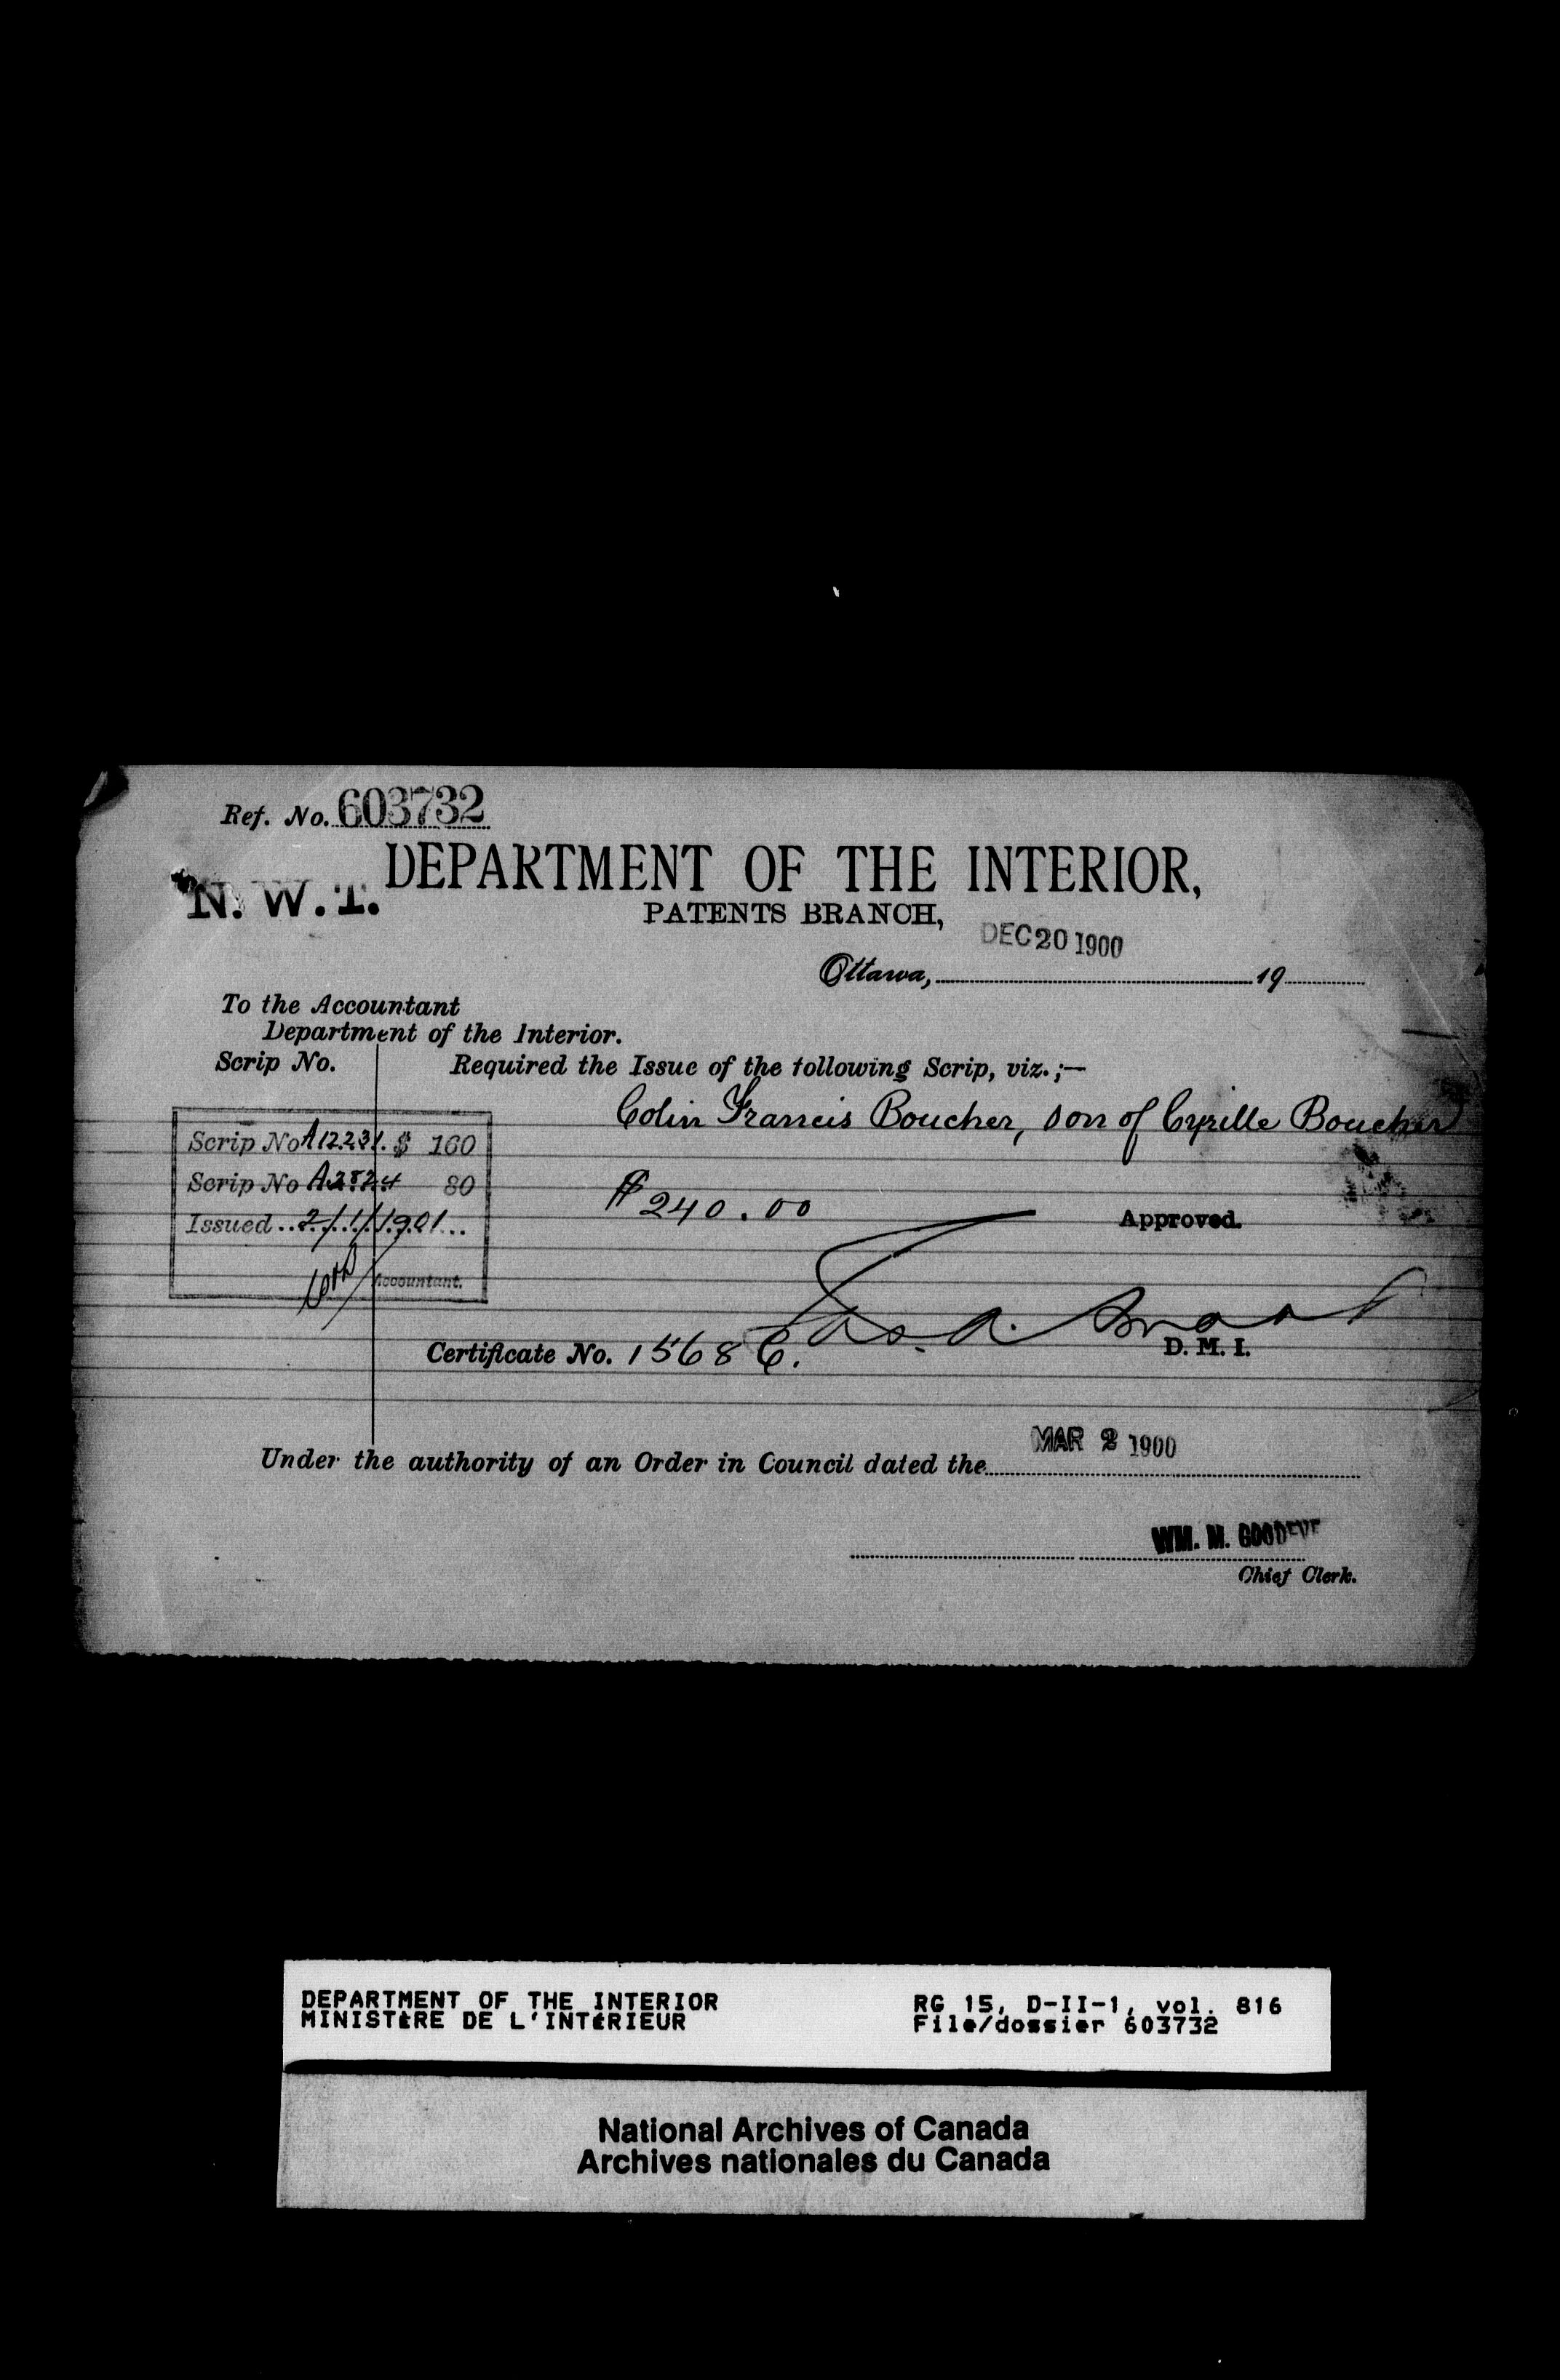 Ref. No. 603732
DEPARTMENT OF THE INTERIOR,
N. W. T.
PATENTS BRANCH,
DEC 20 1900
Ottawa, 19
To the Accountant
Department of the Interior.
Scrip No. Required the Issue of the following Scrip, viz.;—
Colin Francis Boucher, son of Cyrille Boucher
Scrip No A12231. $ 160
Scrip No A2824 80
$240.00
Approved.
Issued.. 2/1/1901...
Accountant.
Jas. A. Smart
Certificate No. 1568 C.
D. M. I.
Under the authority of an Order in Council dated the MAR 2 1900
WM. M. GOODEVE
Chief Clerk.
DEPARTMENT OF THE INTERIOR RG 15, D-II-1, vol. 816
MINISTÈRE DE L'INTÉRIEUR File/dossier 603732
National Archives of Canada
Archives nationales du Canada